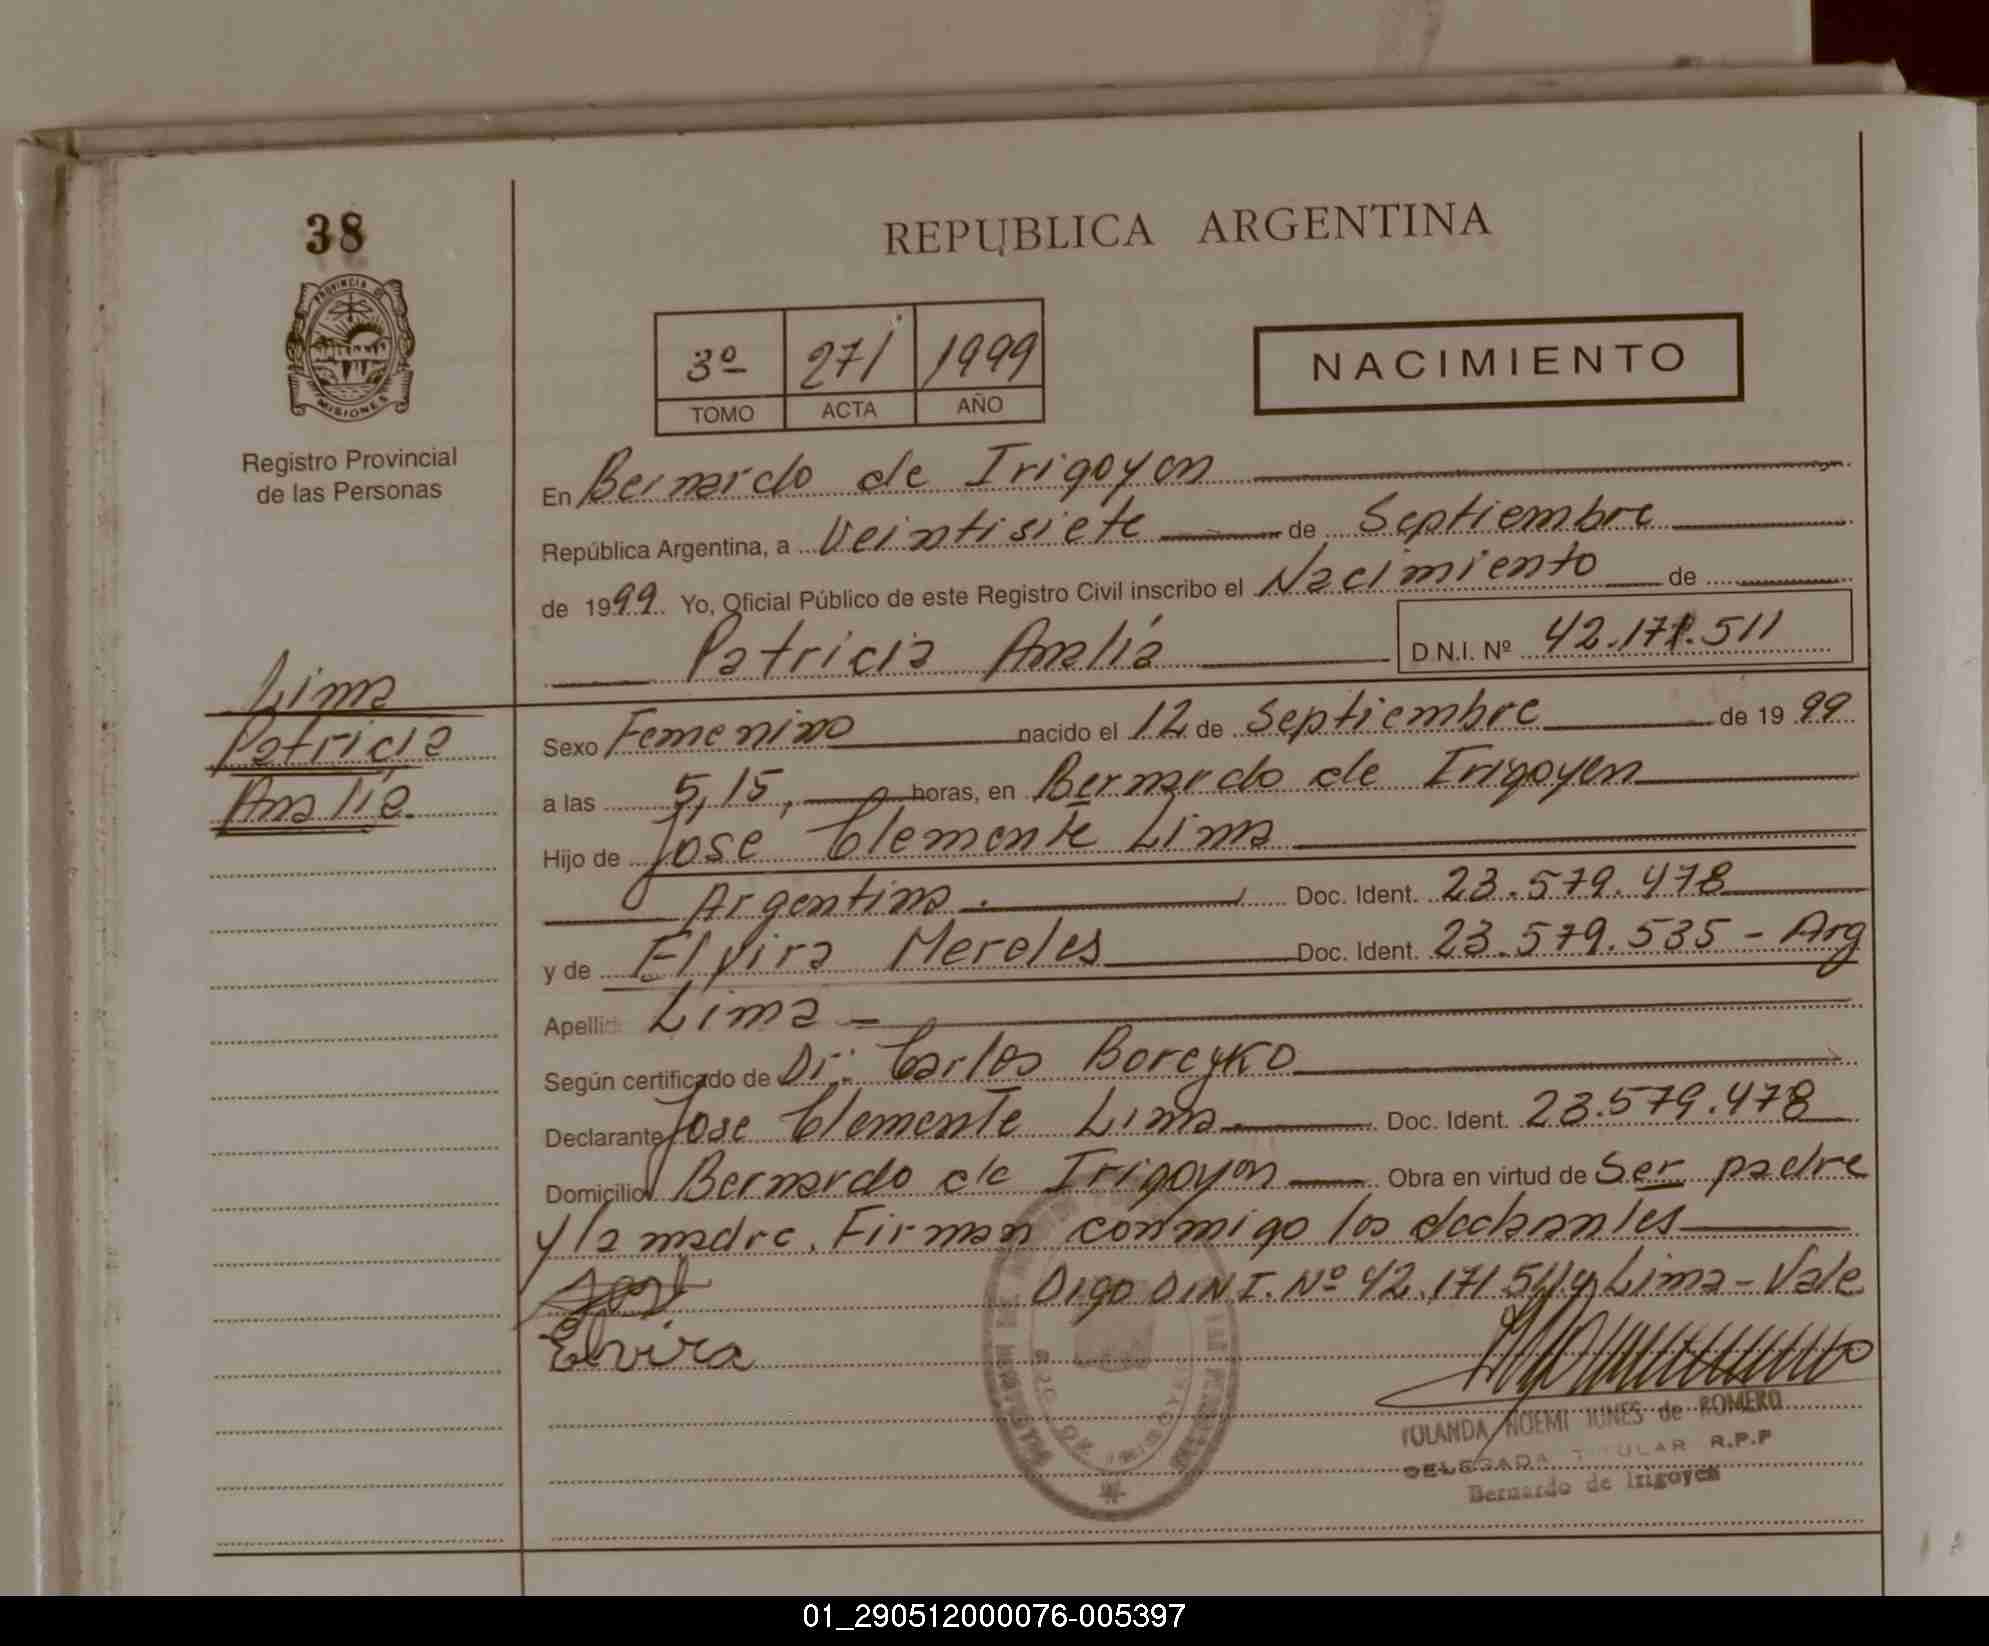 38
REPUBLICA ARGENTINA
PROVINCIA DE
MISIONES
Registro Provincial
de las Personas
3º 271 1999
TOMO ACTA AÑO
NACIMIENTO
En Bernardo de Irigoyen
República Argentina, a Veintisiete de Septiembre
de 1999 Yo, Oficial Público de este Registro Civil inscribo el Nacimiento de
Patricia Analía D N.I. Nº 42.171.511
Lima
Patricia
Analía.
Sexo Femenino nacido el 12 de Septiembre de 19 99
a las 5,15, horas, en Bernardo de Irigoyen
Hijo de Jose Clemente Lima
Argentino. Doc. Ident. 23.579.478
y de Elvira Mereles Doc. Ident. 23.579.535 - Arg
Apellido Lima -
Según certificado de Dr: Carlos Boreyko
Declarante Jose Clemente Lima Doc. Ident. 23.579.478
Domicilio Bernardo de Irigoyen Obra en virtud de Ser padre
y la madre. Firman conmigo los declarantes
Digo D.N.I. Nº 42.171.511 y Lima - Vale
Elvira
YOLANDA NOEMI JUNES de ROMERO
DELEGADA TITULAR R.P.P
Bernardo de Irigoyen
01_290512000076-005397